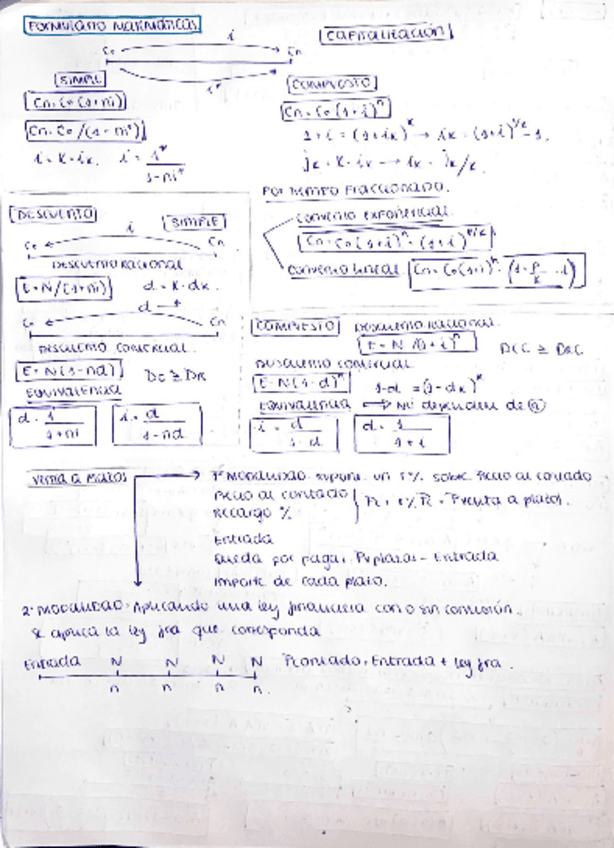 FORMULARIO MATEMÁTICAS
CAPITALIZACIÓN
i
Co Cn
i*
SIMPLE
Cn = Co (1+ni)
Cn = Co /(1-ni*)
i = K · ik   i = i* / 1-ni*
COMPUESTO
Cn = Co (1+i)^n
1+i = (1+ik)^k → ik = (1+i)^1/k - 1.
jk = K · ik → ik = jk/k.
POR TIEMPO FRACCIONADO.
CONVENIO EXPONENCIAL
Cn = Co (1+i)^n · (1+i)^p/k
CONVENIO LINEAL Cn = Co (1+i)^n · (1+ p/k · i)
DESCUENTO
SIMPLE
i
Co Cn
DESCUENTO RACIONAL
E = N/(1+ni)   d = K · dk.
d
Co Cn
DESCUENTO COMERCIAL.
E = N(1-nd)   DC ≥ DR
EQUIVALENCIA
d = i / 1+ni   i = d / 1-nd
COMPUESTO DESCUENTO RACIONAL.
E = N /(1+i)^n   DCC ≥ DRC
DESCUENTO COMERCIAL
E = N(1-d)^n   1-d = (1-dk)^k
EQUIVALENCIA → No dependen de n
i = d / 1-d   d = i / 1+i
VENTA A PLAZOS
1ª MODALIDAD: supone un % sobre Precio al contado
Precio al contado
Recargo %
Entrada
Queda por pagar = - Entrada
Importe de cada plazo.
2ª MODALIDAD: Aplicando una ley financiera con o sin comisión.
Se aplica la ley fra que corresponda
Entrada N N N N   Pcontado = Entrada + ley fra.
n n n n.